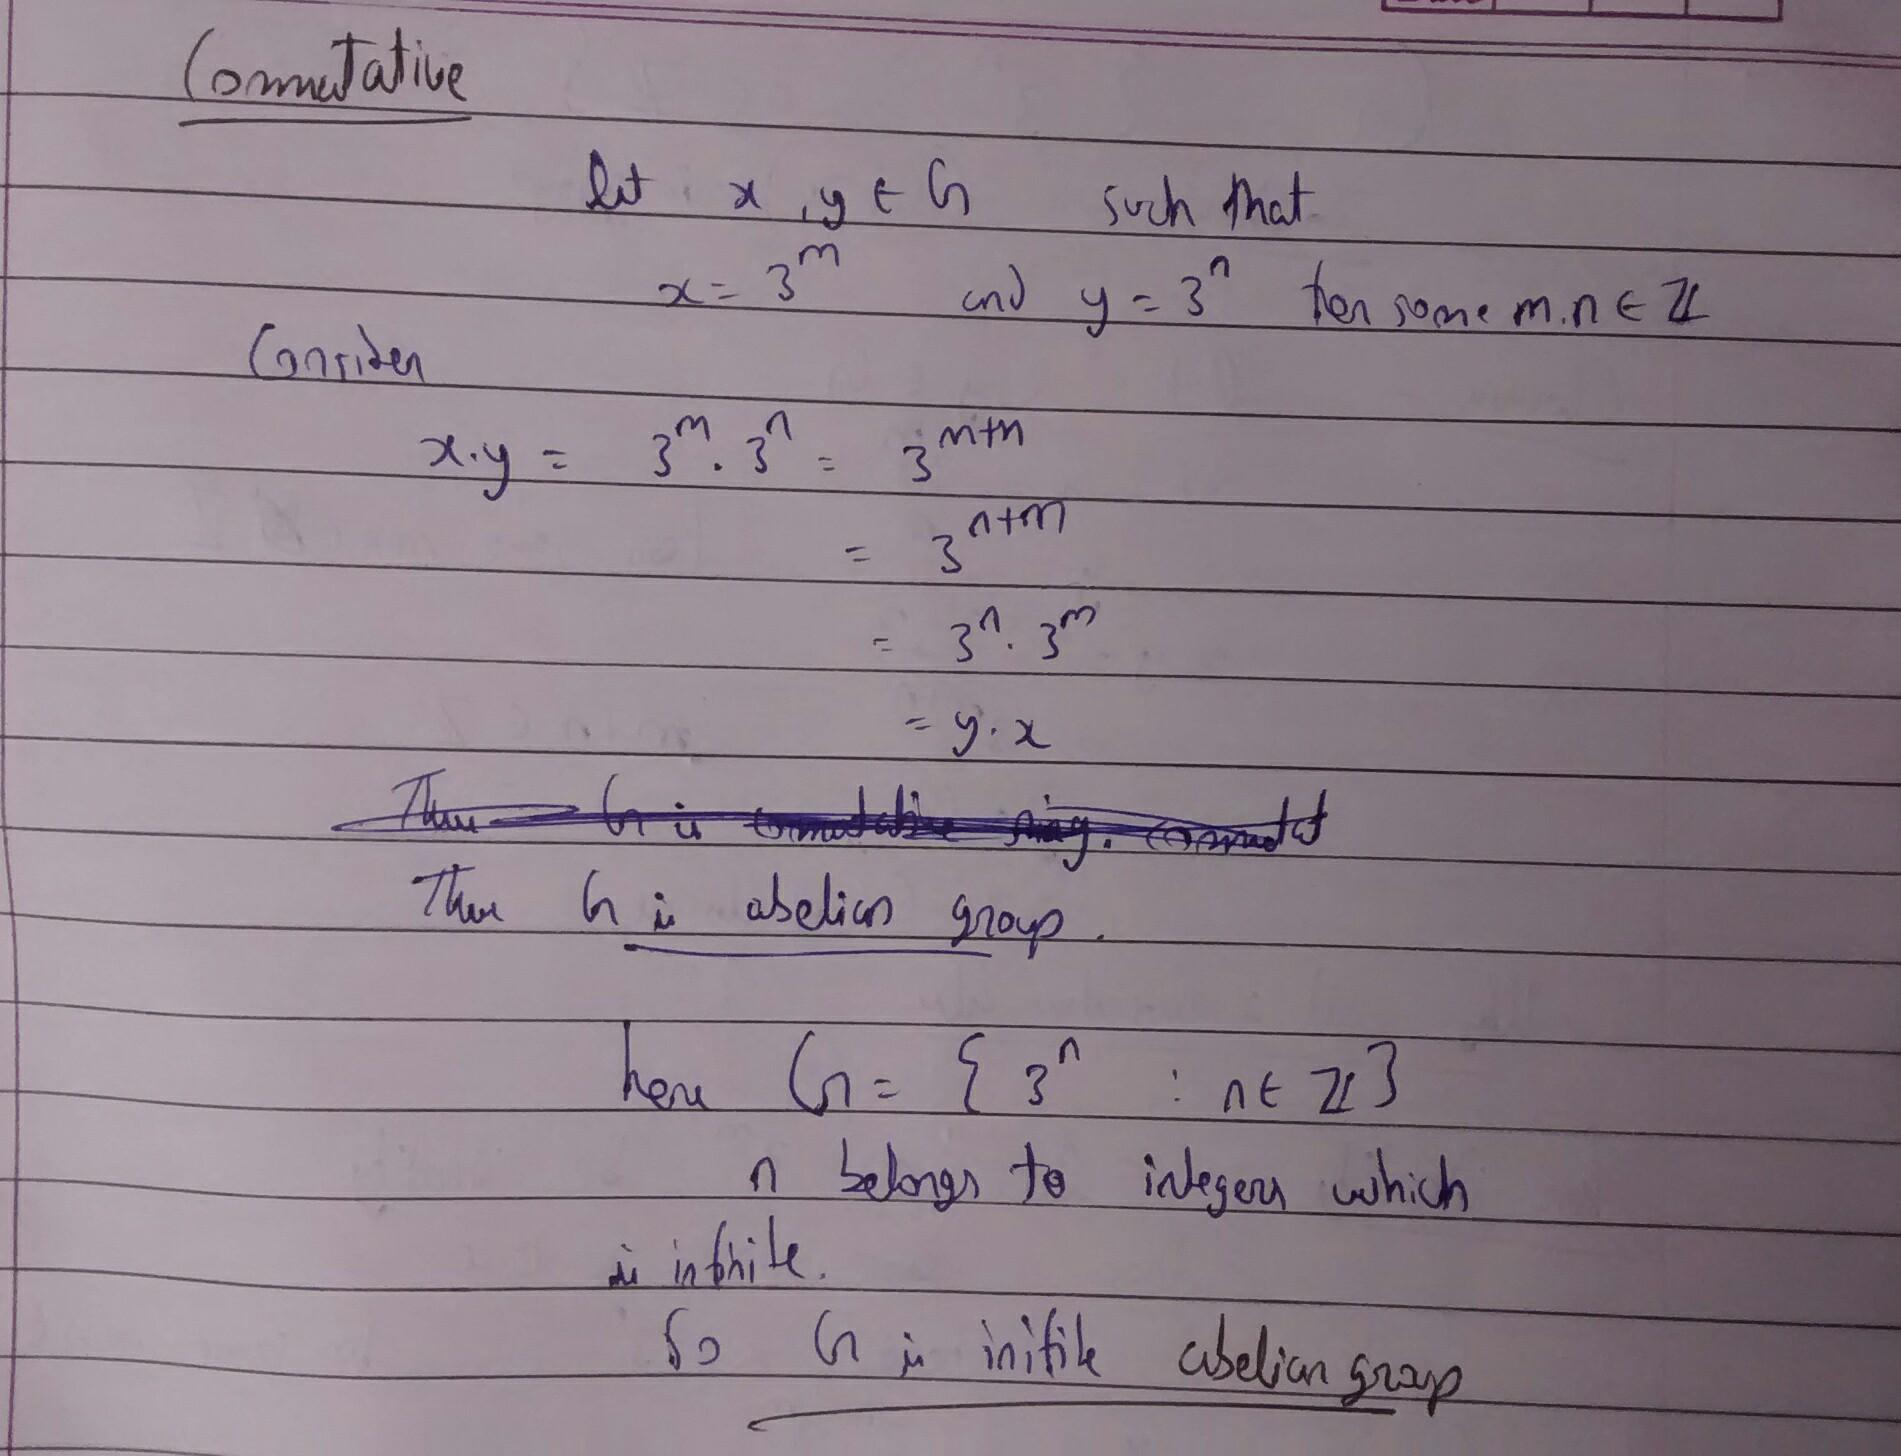 Commutative
let x, y ∈ G such that
x = 3^m and y = 3^n for some m, n ∈ ℤ
Consider
x.y = 3^m . 3^n = 3^{m+n}
= 3^{n+m}
= 3^n . 3^m
= y.x
G is commutative ring.
Thus G is abelian group.
here G = { 3^n : n ∈ ℤ }
n belongs to integers which
is infinite.
So G is initile abelian group